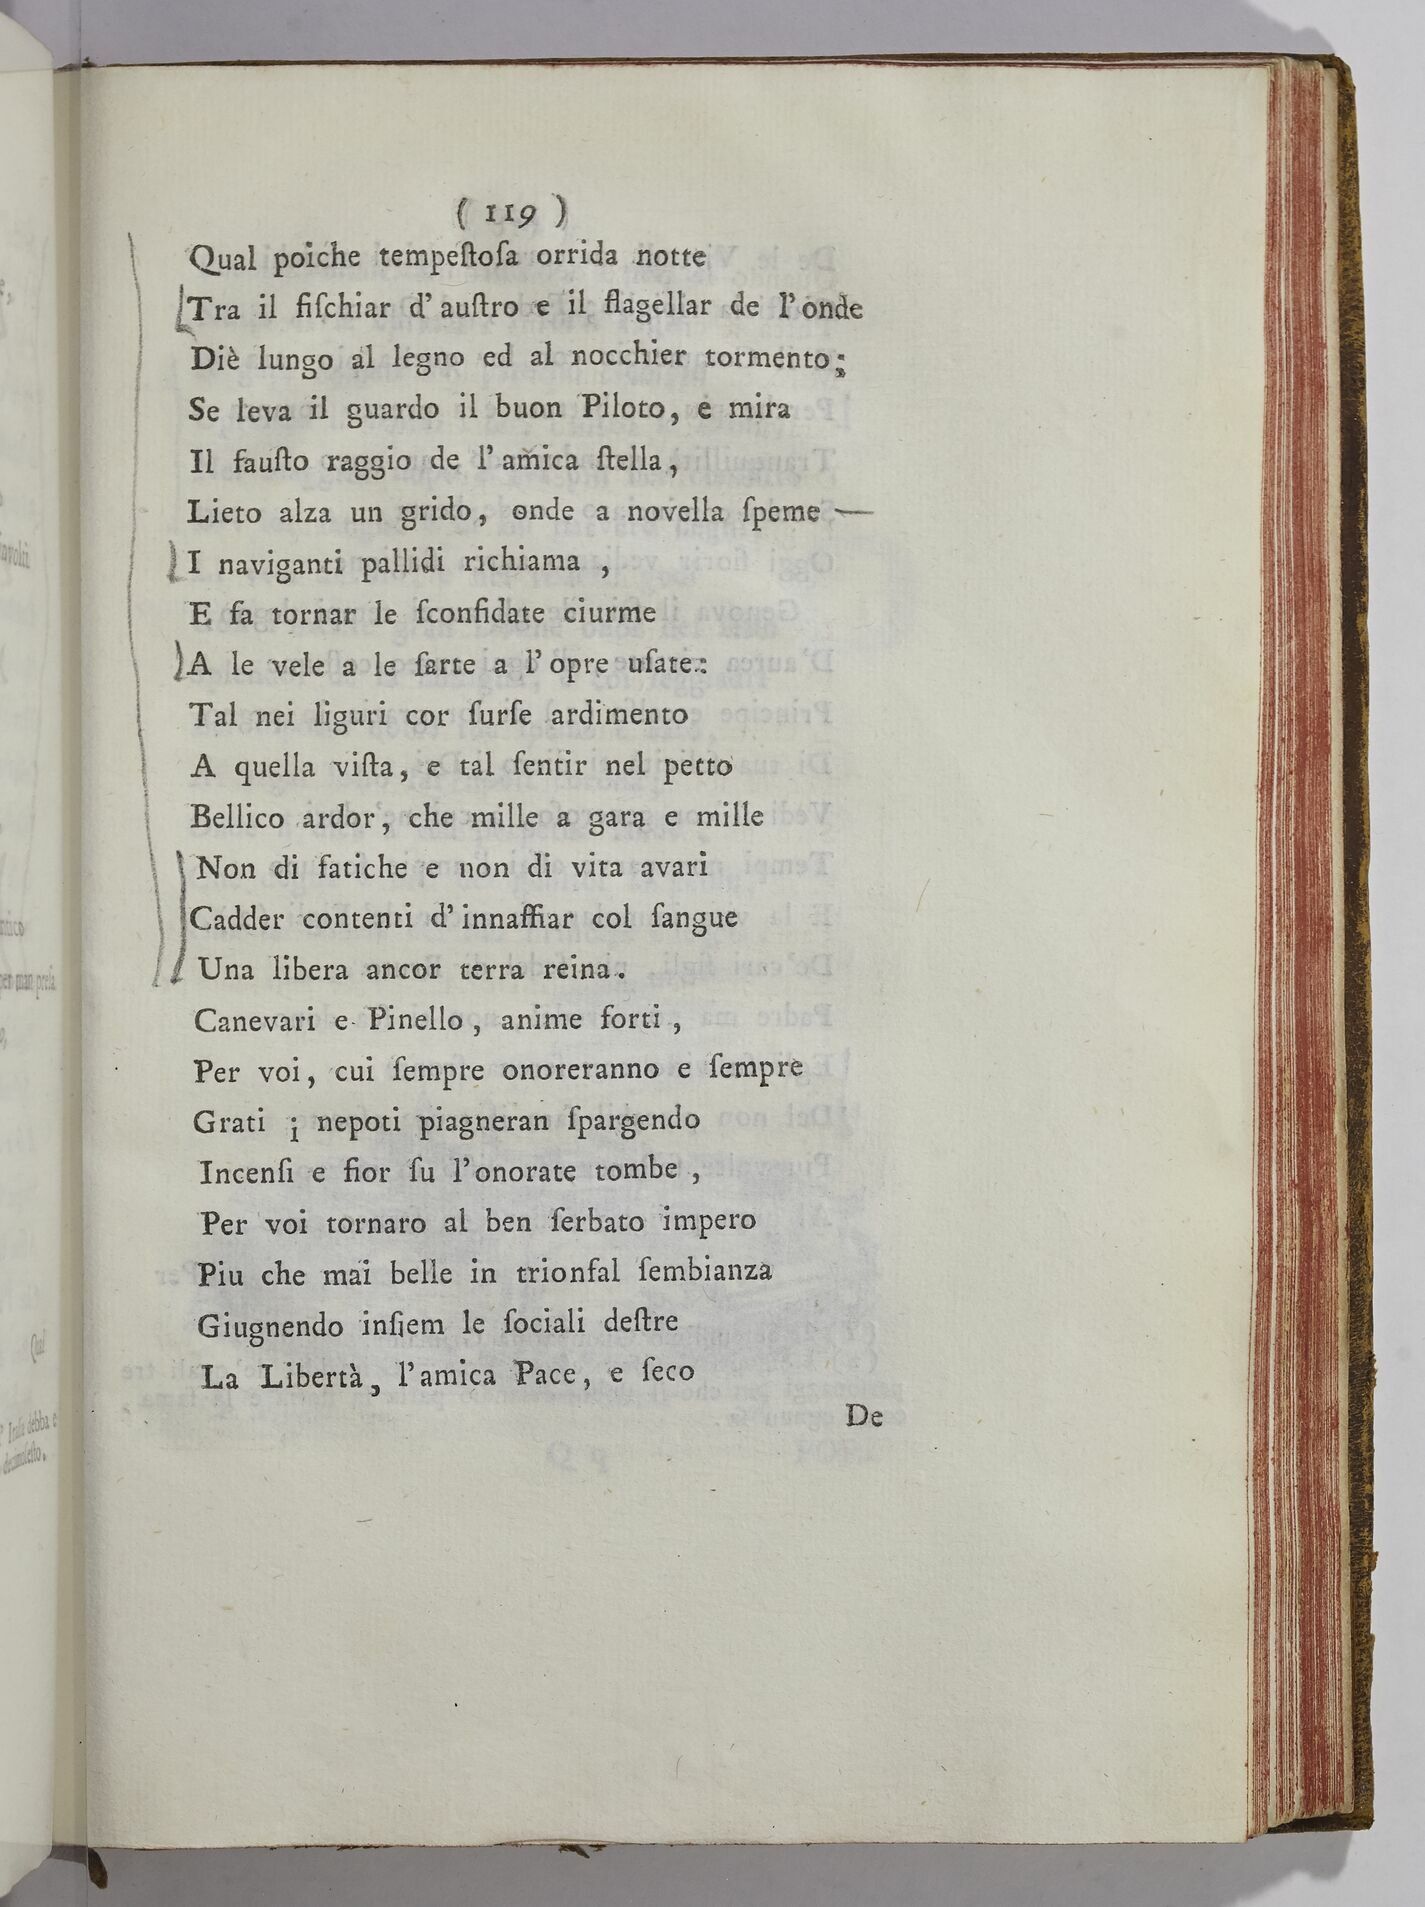 ( 119 )
Qual poiche tempeſtoſa orrida notte
Tra il fiſchiar d' auſtro e il flagellar de l'onde
Diè lungo al legno ed al nocchier tormento;
Se leva il guardo il buon Piloto, e mira
Il fauſto raggio de l'amica ſtella,
Lieto alza un grido, onde a novella ſpeme —
I naviganti pallidi richiama ,
E fa tornar le ſconfidate ciurme
A le vele a le ſarte a l'opre uſate:
Tal nei liguri cor ſurſe ardimento
A quella viſta, e tal ſentir nel petto
Bellico ardor, che mille a gara e mille
Non di fatiche e non di vita avari
Cadder contenti d'innaffiar col ſangue
Una libera ancor terra reina.
Canevari e Pinello , anime forti ,
Per voi, cui ſempre onoreranno e ſempre
Grati i nepoti piagneran ſpargendo
Incenſi e fior ſu l'onorate tombe ,
Per voi tornaro al ben ſerbato impero
Piu che mai belle in trionfal ſembianza
Giugnendo inſiem le ſociali deſtre
La Libertà, l'amica Pace, e ſeco
De